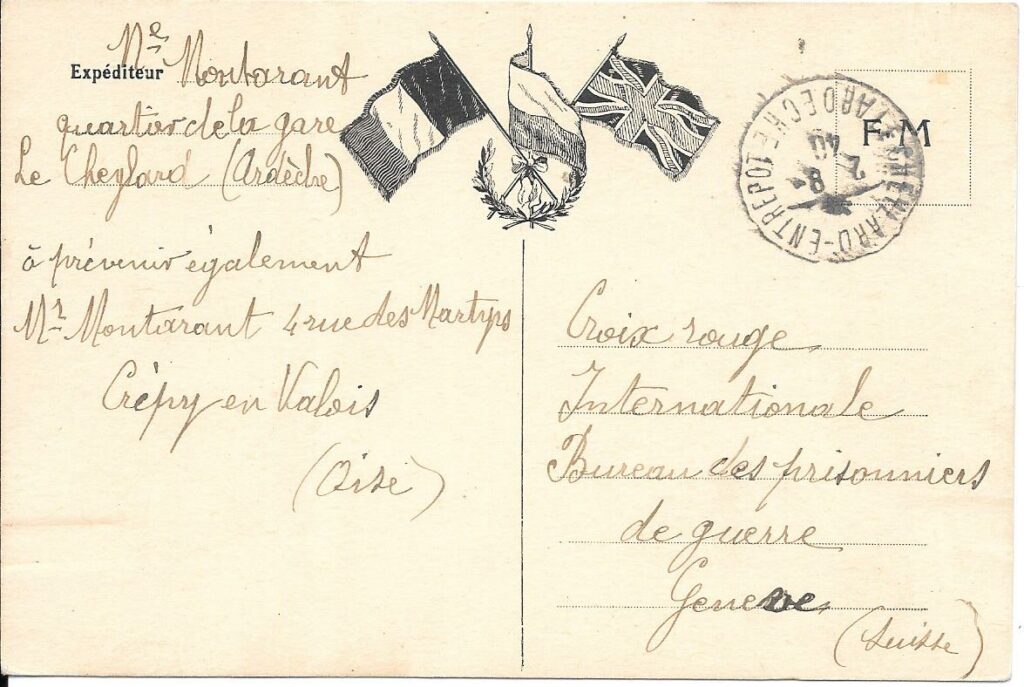 Expéditeur Me Montarant
quartier de la gare
Le Cheylard (Ardèche)
à prévenir également
Mr Montarant 4 rue des Martyrs
Crépy en Valois
(Oise)
F M
LE CHEYLARD-ENTREPOT
ARDECHE
2
8
40
Croix rouge
Internationale
Bureau des prisonniers
de guerre
Geneve
(Suisse)